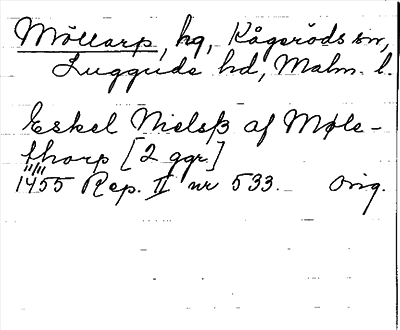 Möllarp, hg, Kågeröds sn,
Luggude hd, Malm. l.
Eskel Nielsß af Møle-
thorp [2 ggr.]
11/11
1455 Rep. II nr 533. Orig.